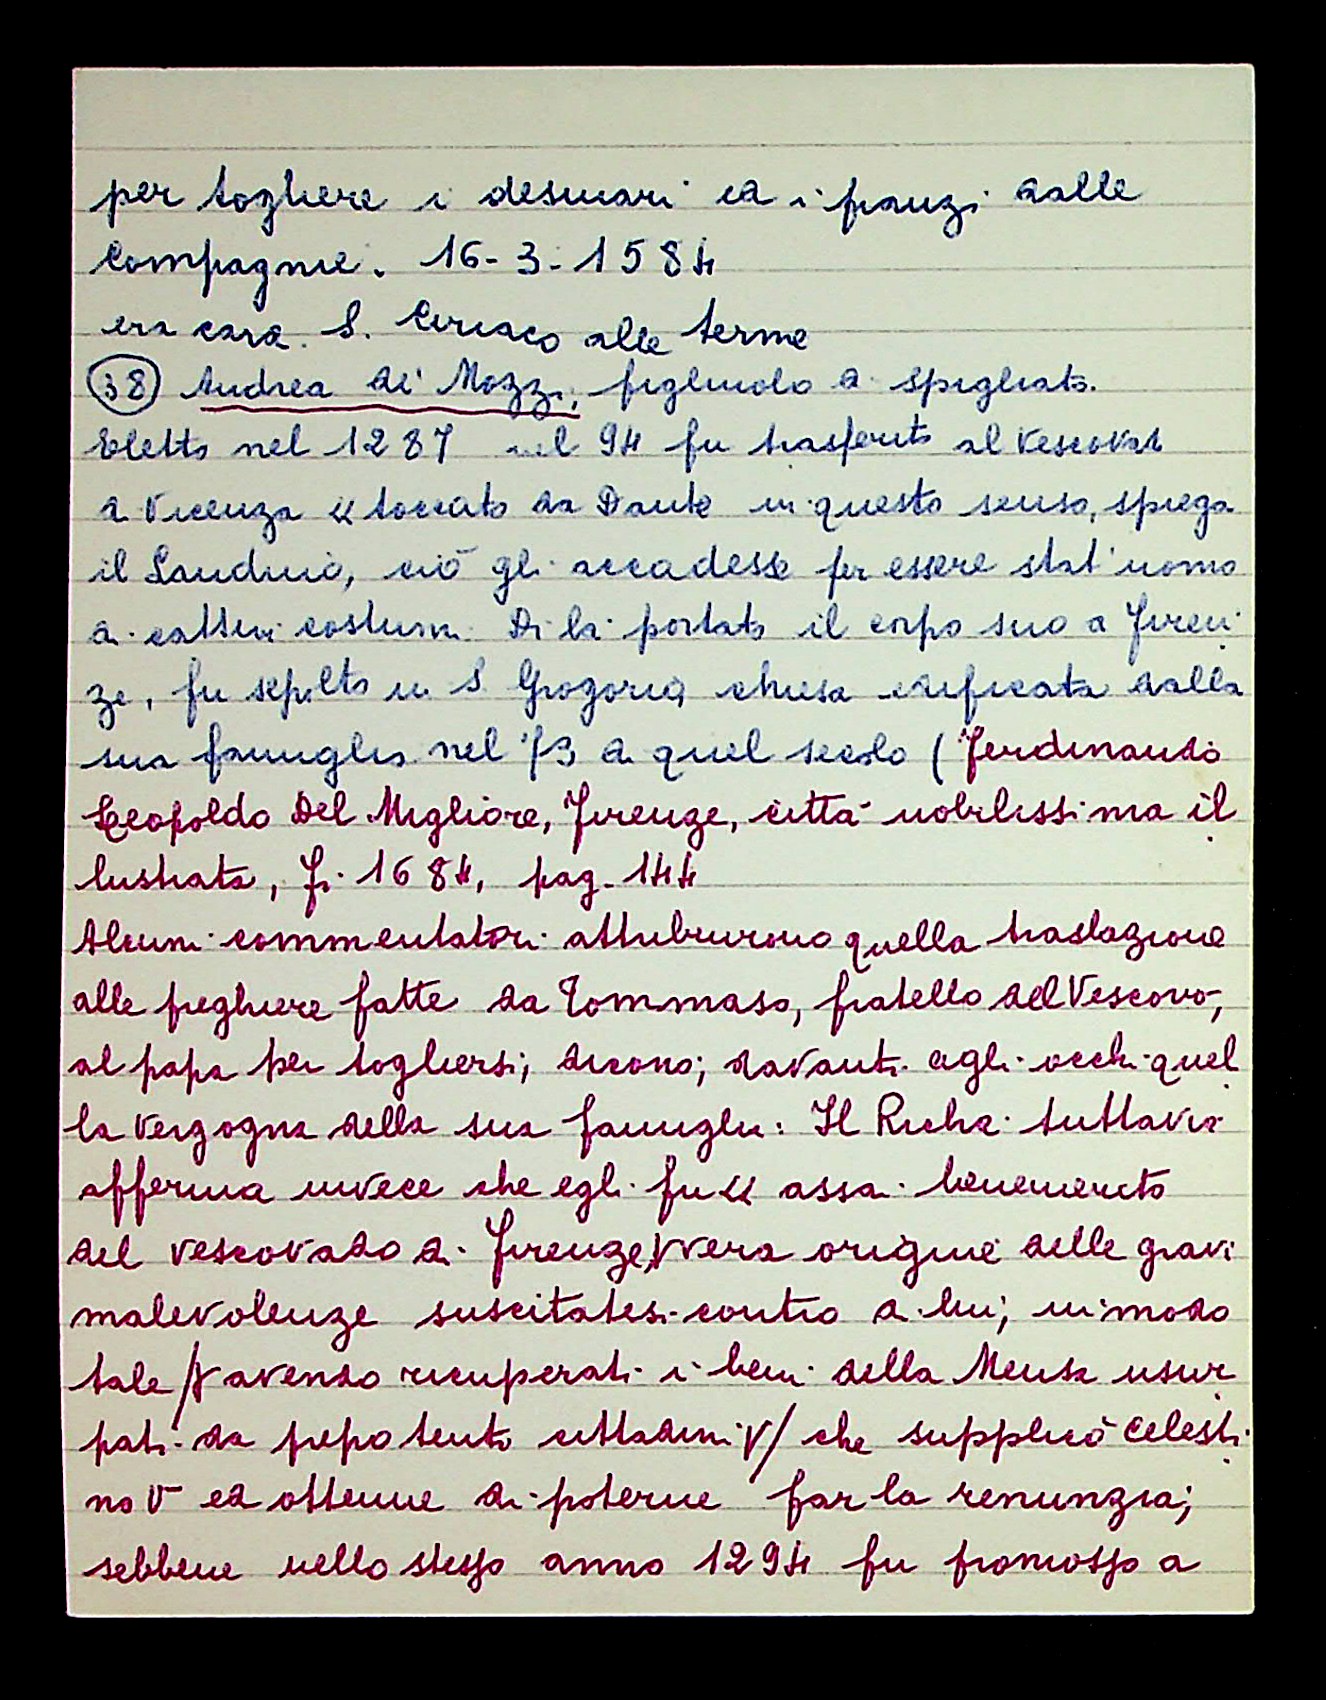 per togliere i desinari ed i pranzi dalle
Compagnie. 16-3-1584
era card. S. Ciriaco alle terme
38 Andrea de' Mozzi, figliuolo d. Spigliato.
Eletto nel 1287 nel 94 fu trasferito al Vescovat
a Vicenza « toccato da Dante in questo senso, spiega
il Landino, ciò gli accadesse per essere stat'uomo
di cattivi costumi. Di là portato il corpo suo a Firen
ze, fu sepolto in S Grogorio, chiesa edificata dalla
sua famiglia nel '73 di quel secolo ( Ferdinando
Leopoldo Del Migliore, Firenze, città nobilissima il
lustrata, Fi. 1684, pag. 144
Alcuni commentatori attribuirono quella traslazione
alle preghiere fatte da Tommaso, fratello del Vescovo,
al papa per togliersi; dicono; davanti agli occhi quel
la vergogna della sua famiglia: Il Richa tuttavia
afferma invece che egli fu « assai benemerito
del vescovado di Firenze, vera origine delle gravi
malevolenze suscitatesi contro di lui; in modo
tale / avendo ricuperati i beni della Mensa usur
pati da prepotenti cittadini / che supplicò Celesti
no V ed ottenne di poterne far la renunzia;
sebbene nello stesso anno 1294 fu promosso a